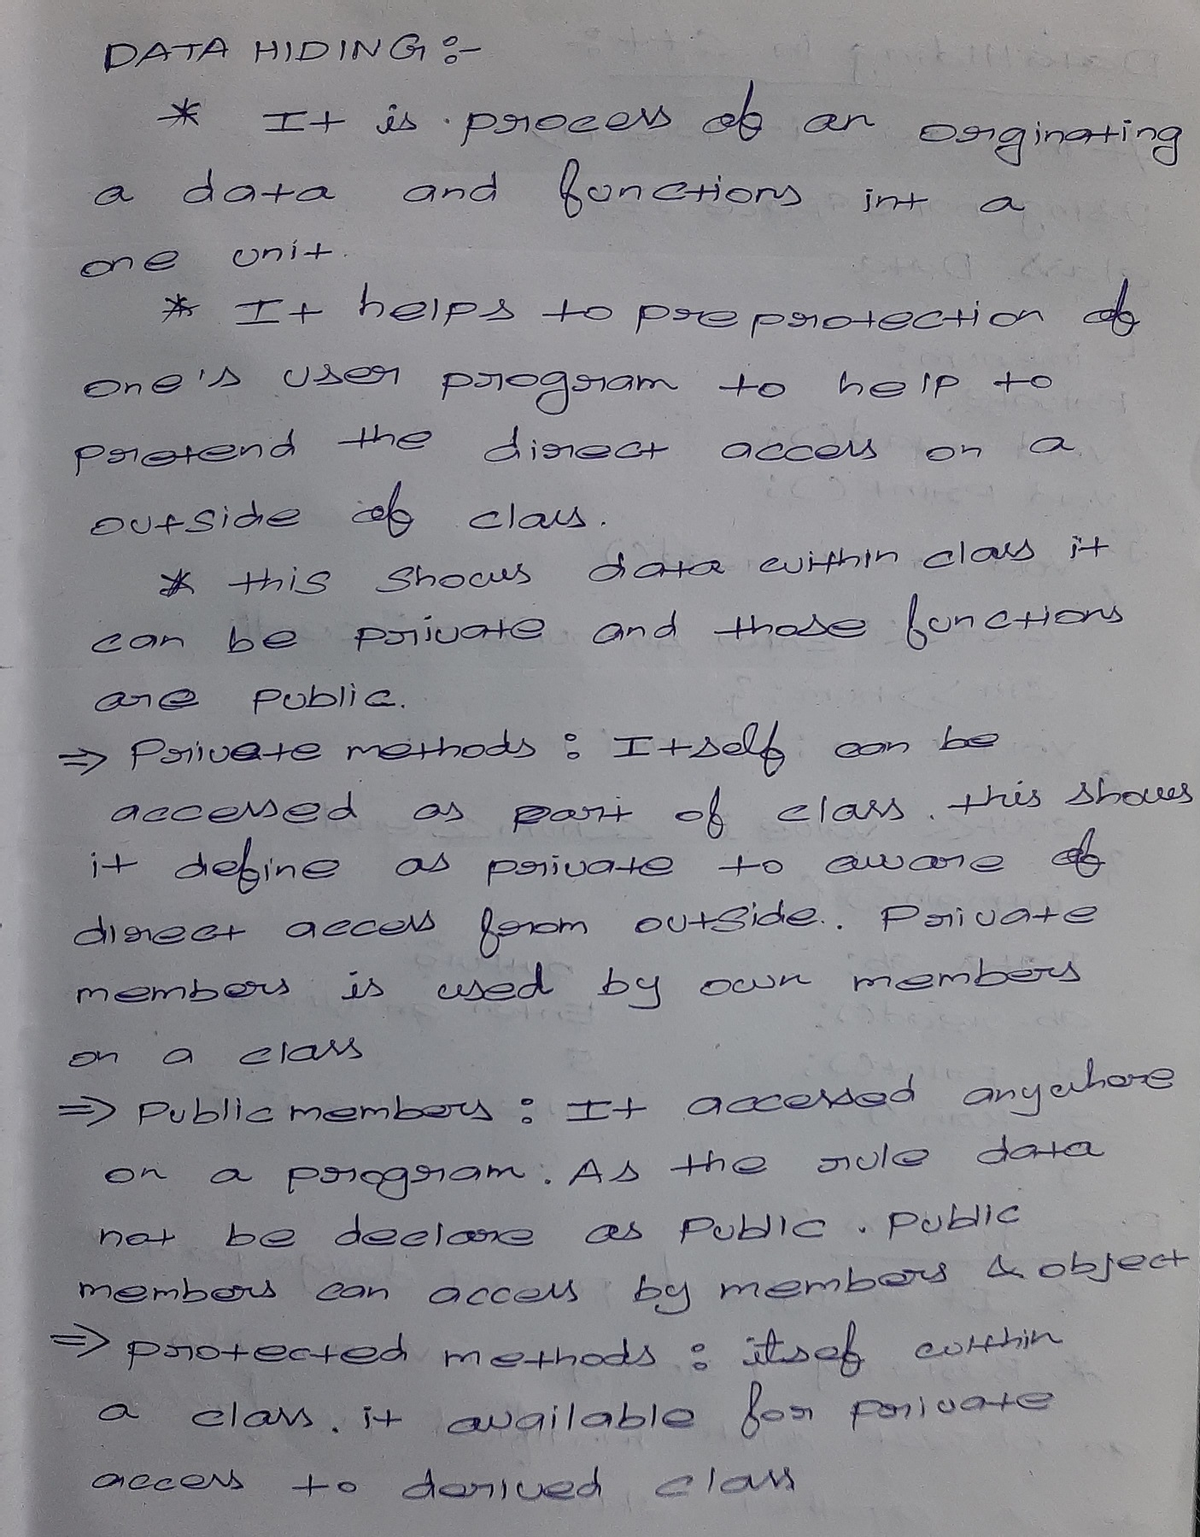 DATA HIDING :-
* It is process of an orginating
a data and functions int a
one unit.
* It helps to preprotection of
one's user program to help to
pretend the direct access on a
outside of class.
* this shows data within class it
can be private and those functions
are public.
⇒ Private methods : Itself can be
accessed as part of class. this shows
it define as private to aware of
direct access from outside. Private
members is used by own members
on a class
⇒ Public members : It accessed anywhere
on a program. As the rule data
not be declare as public. Public
members can access by members & object
⇒ protected methods : itsef within
a class. it available for private
access to derived class